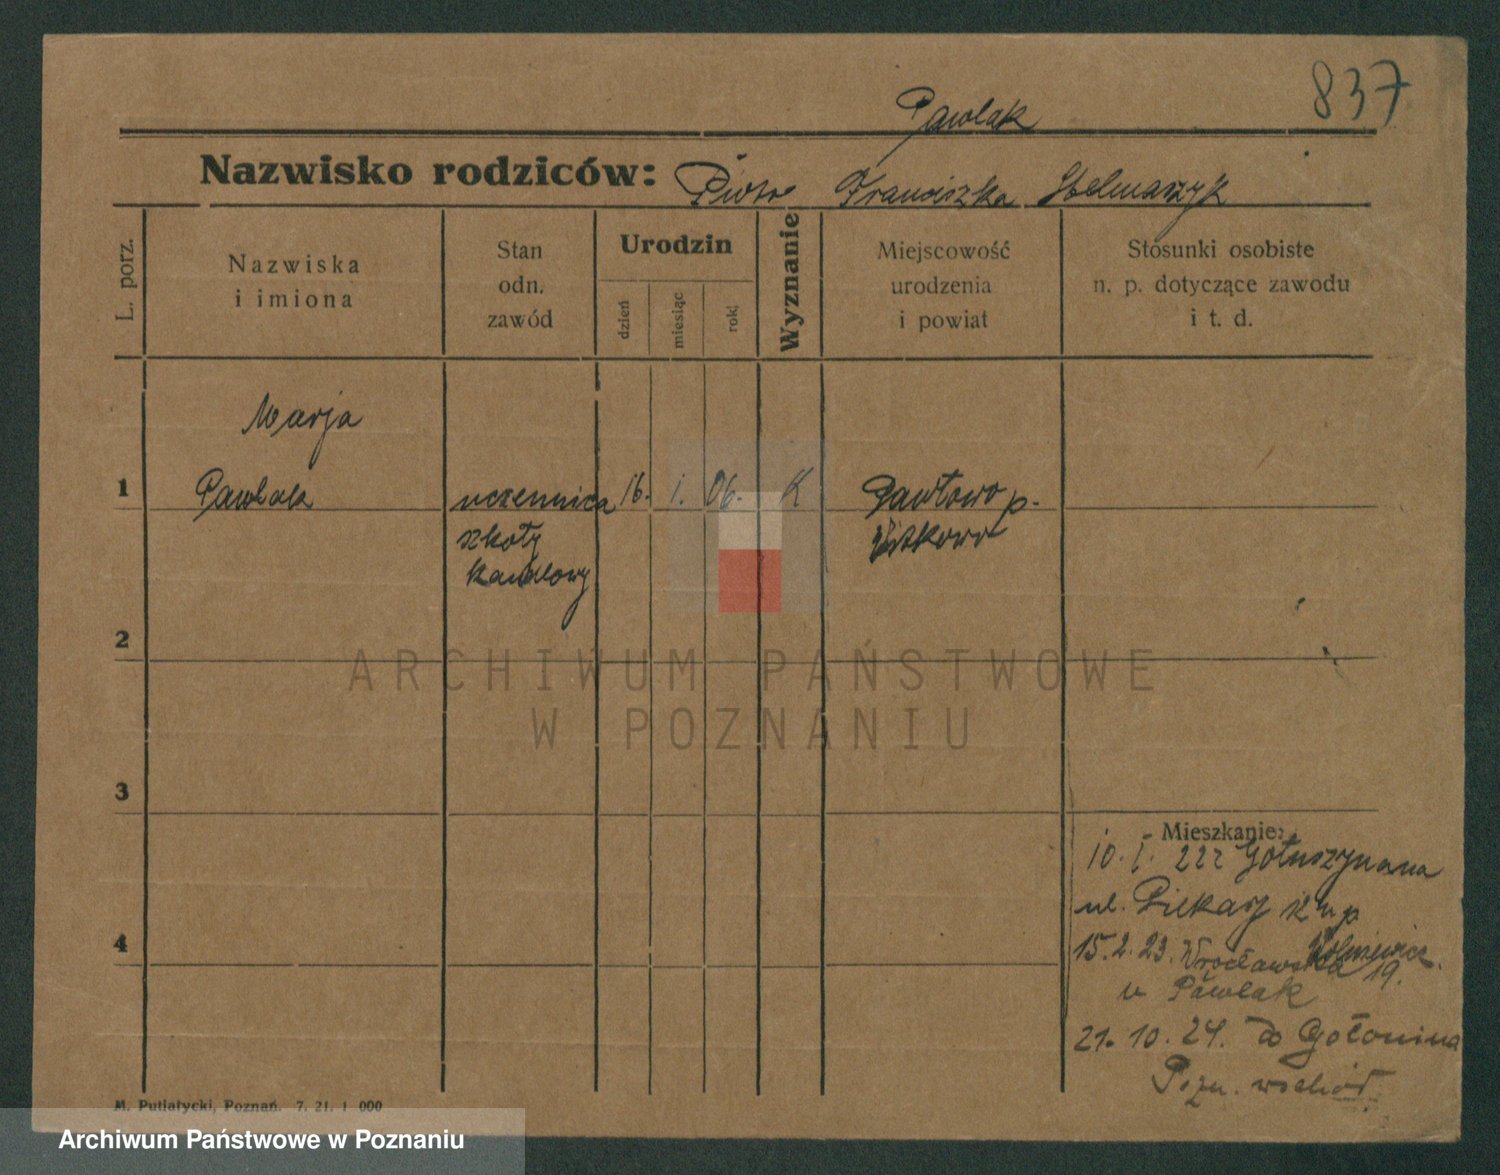 837
Pawlak
Nazwisko rodziców: Piotr Franciszka Stelmaszyk
L. porz.
Nazwiska
i imiona
Stan
odn.
zawód
Urodzin
dzień
miesiąc
rok
Wyznanie
Miejscowość
urodzenia
i powiat
Stosunki osobiste
n. p. dotyczące zawodu
i t. d.
Marja
1 Pawlak uczennica 16. 1. 06. K Pawłowo p.
szkoły Witkowo
handlowy
2
3
4
Mieszkanie:
10. I. 22 z
ul. Piekary
15. 2. 23. Wrocławska 19.
u Pawlak
21. 10. 24. do
Pozn. wschód
M. Putiatycki, Poznań. 7. 21. 1 000
ARCHIWUM PAŃSTWOWE
W POZNANIU
Archiwum Państwowe w Poznaniu